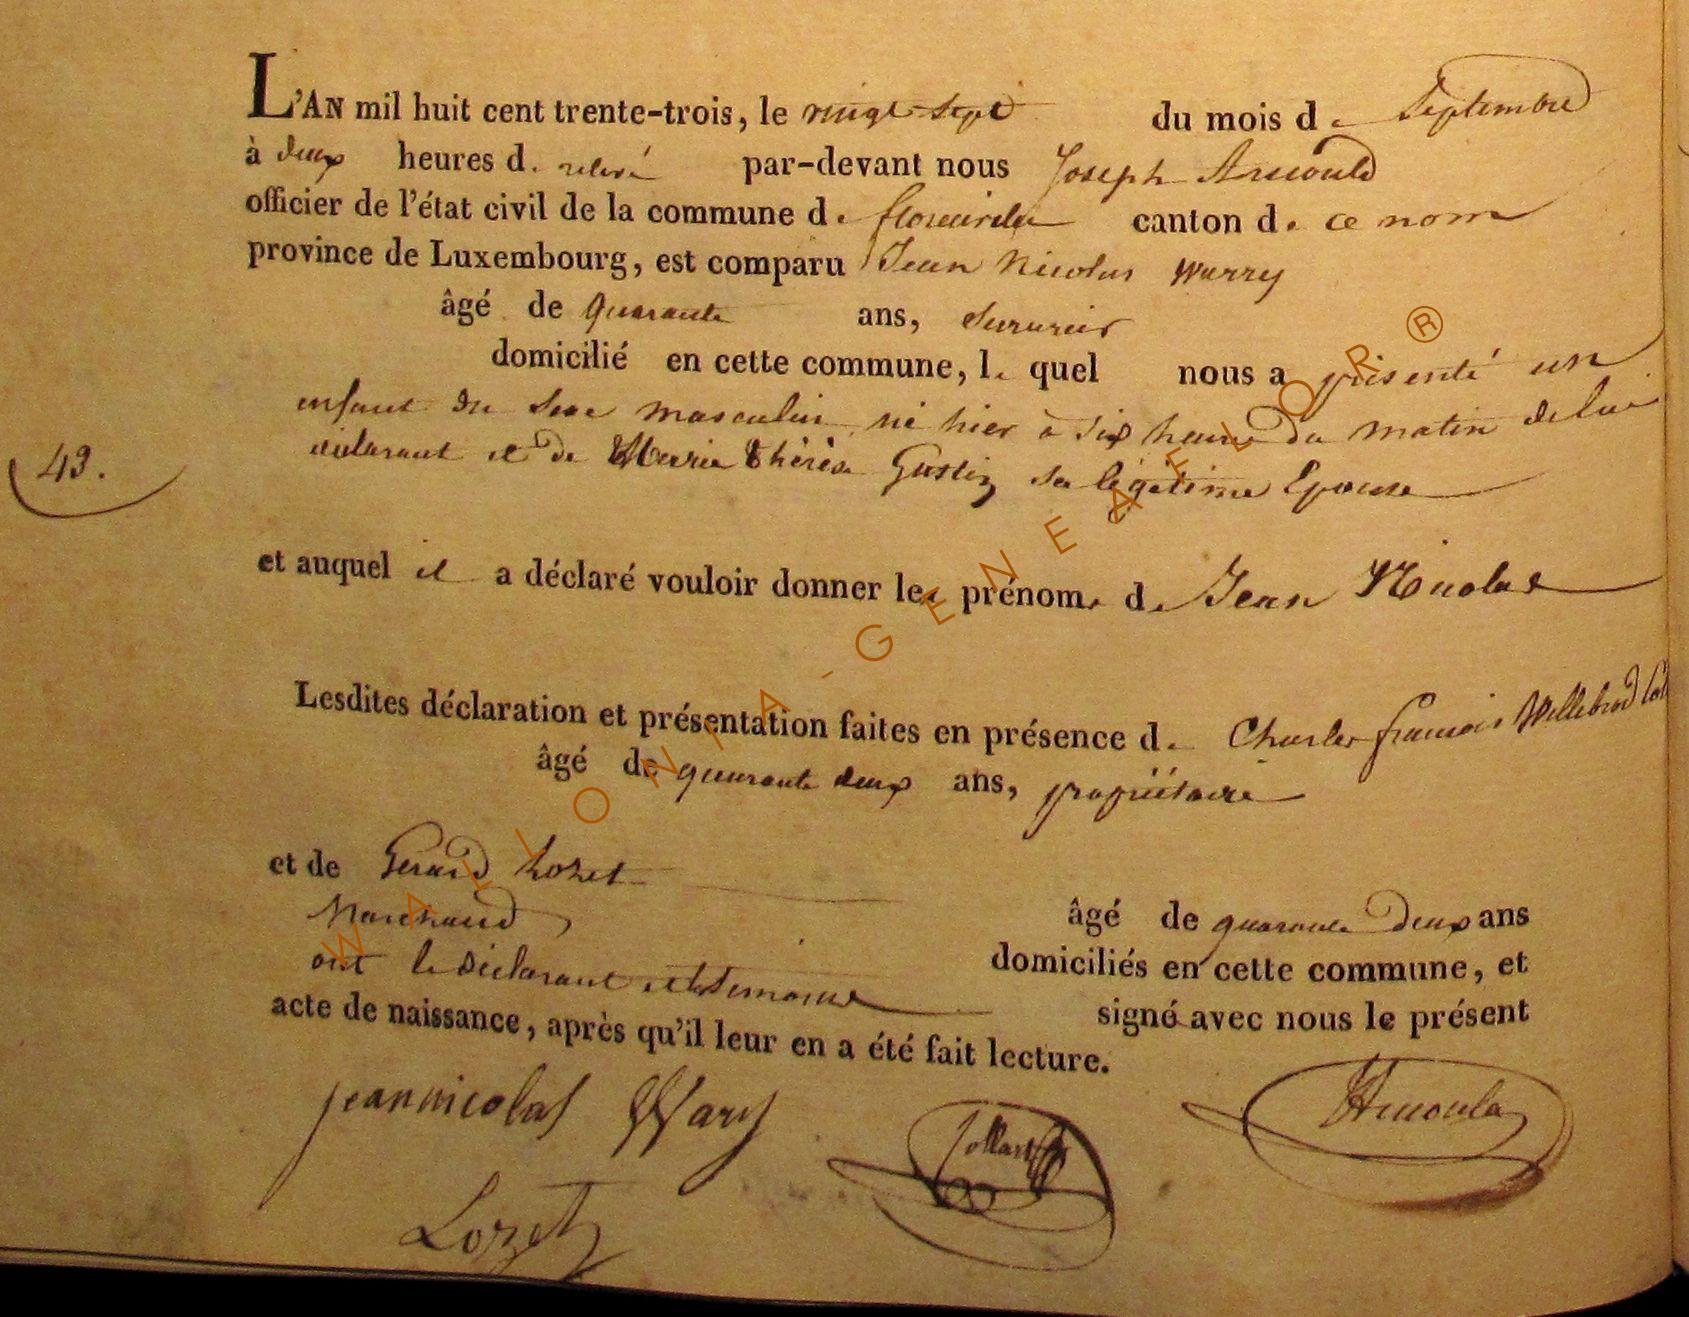 L'AN mil huit cent trente-trois, le vingt Sept du mois de Septembre
à deux heures de relevé par-devant nous Joseph Arnould
officier de l'état civil de la commune de florenville canton de ce nom
province de Luxembourg, est comparu Jean Nicolas Warry
âgé de Quarante ans, Serrurier
domicilié en cette commune, le quel nous a présenté un
49.
enfant du Sexe masculin né hier à Six heures du matin de lui
déclarant et de Marie Thérèse Gustin sa légitime Epouse
et auquel il a déclaré vouloir donner les prénoms de Jean Nicolas
Lesdites déclaration et présentation faites en présence de Charles françois Willebrod
âgé de quarante deux ans, propriétaire
et de Gerard Lozet
Marchand âgé de quarante deux ans
domiciliés en cette commune, et
ont le déclarant et les temoins signé avec nous le présent
acte de naissance, après qu'il leur en a été fait lecture.
jean nicolas Wary
Collart
JArnould
Lozet
WALLONIA-GENEAFLOR®